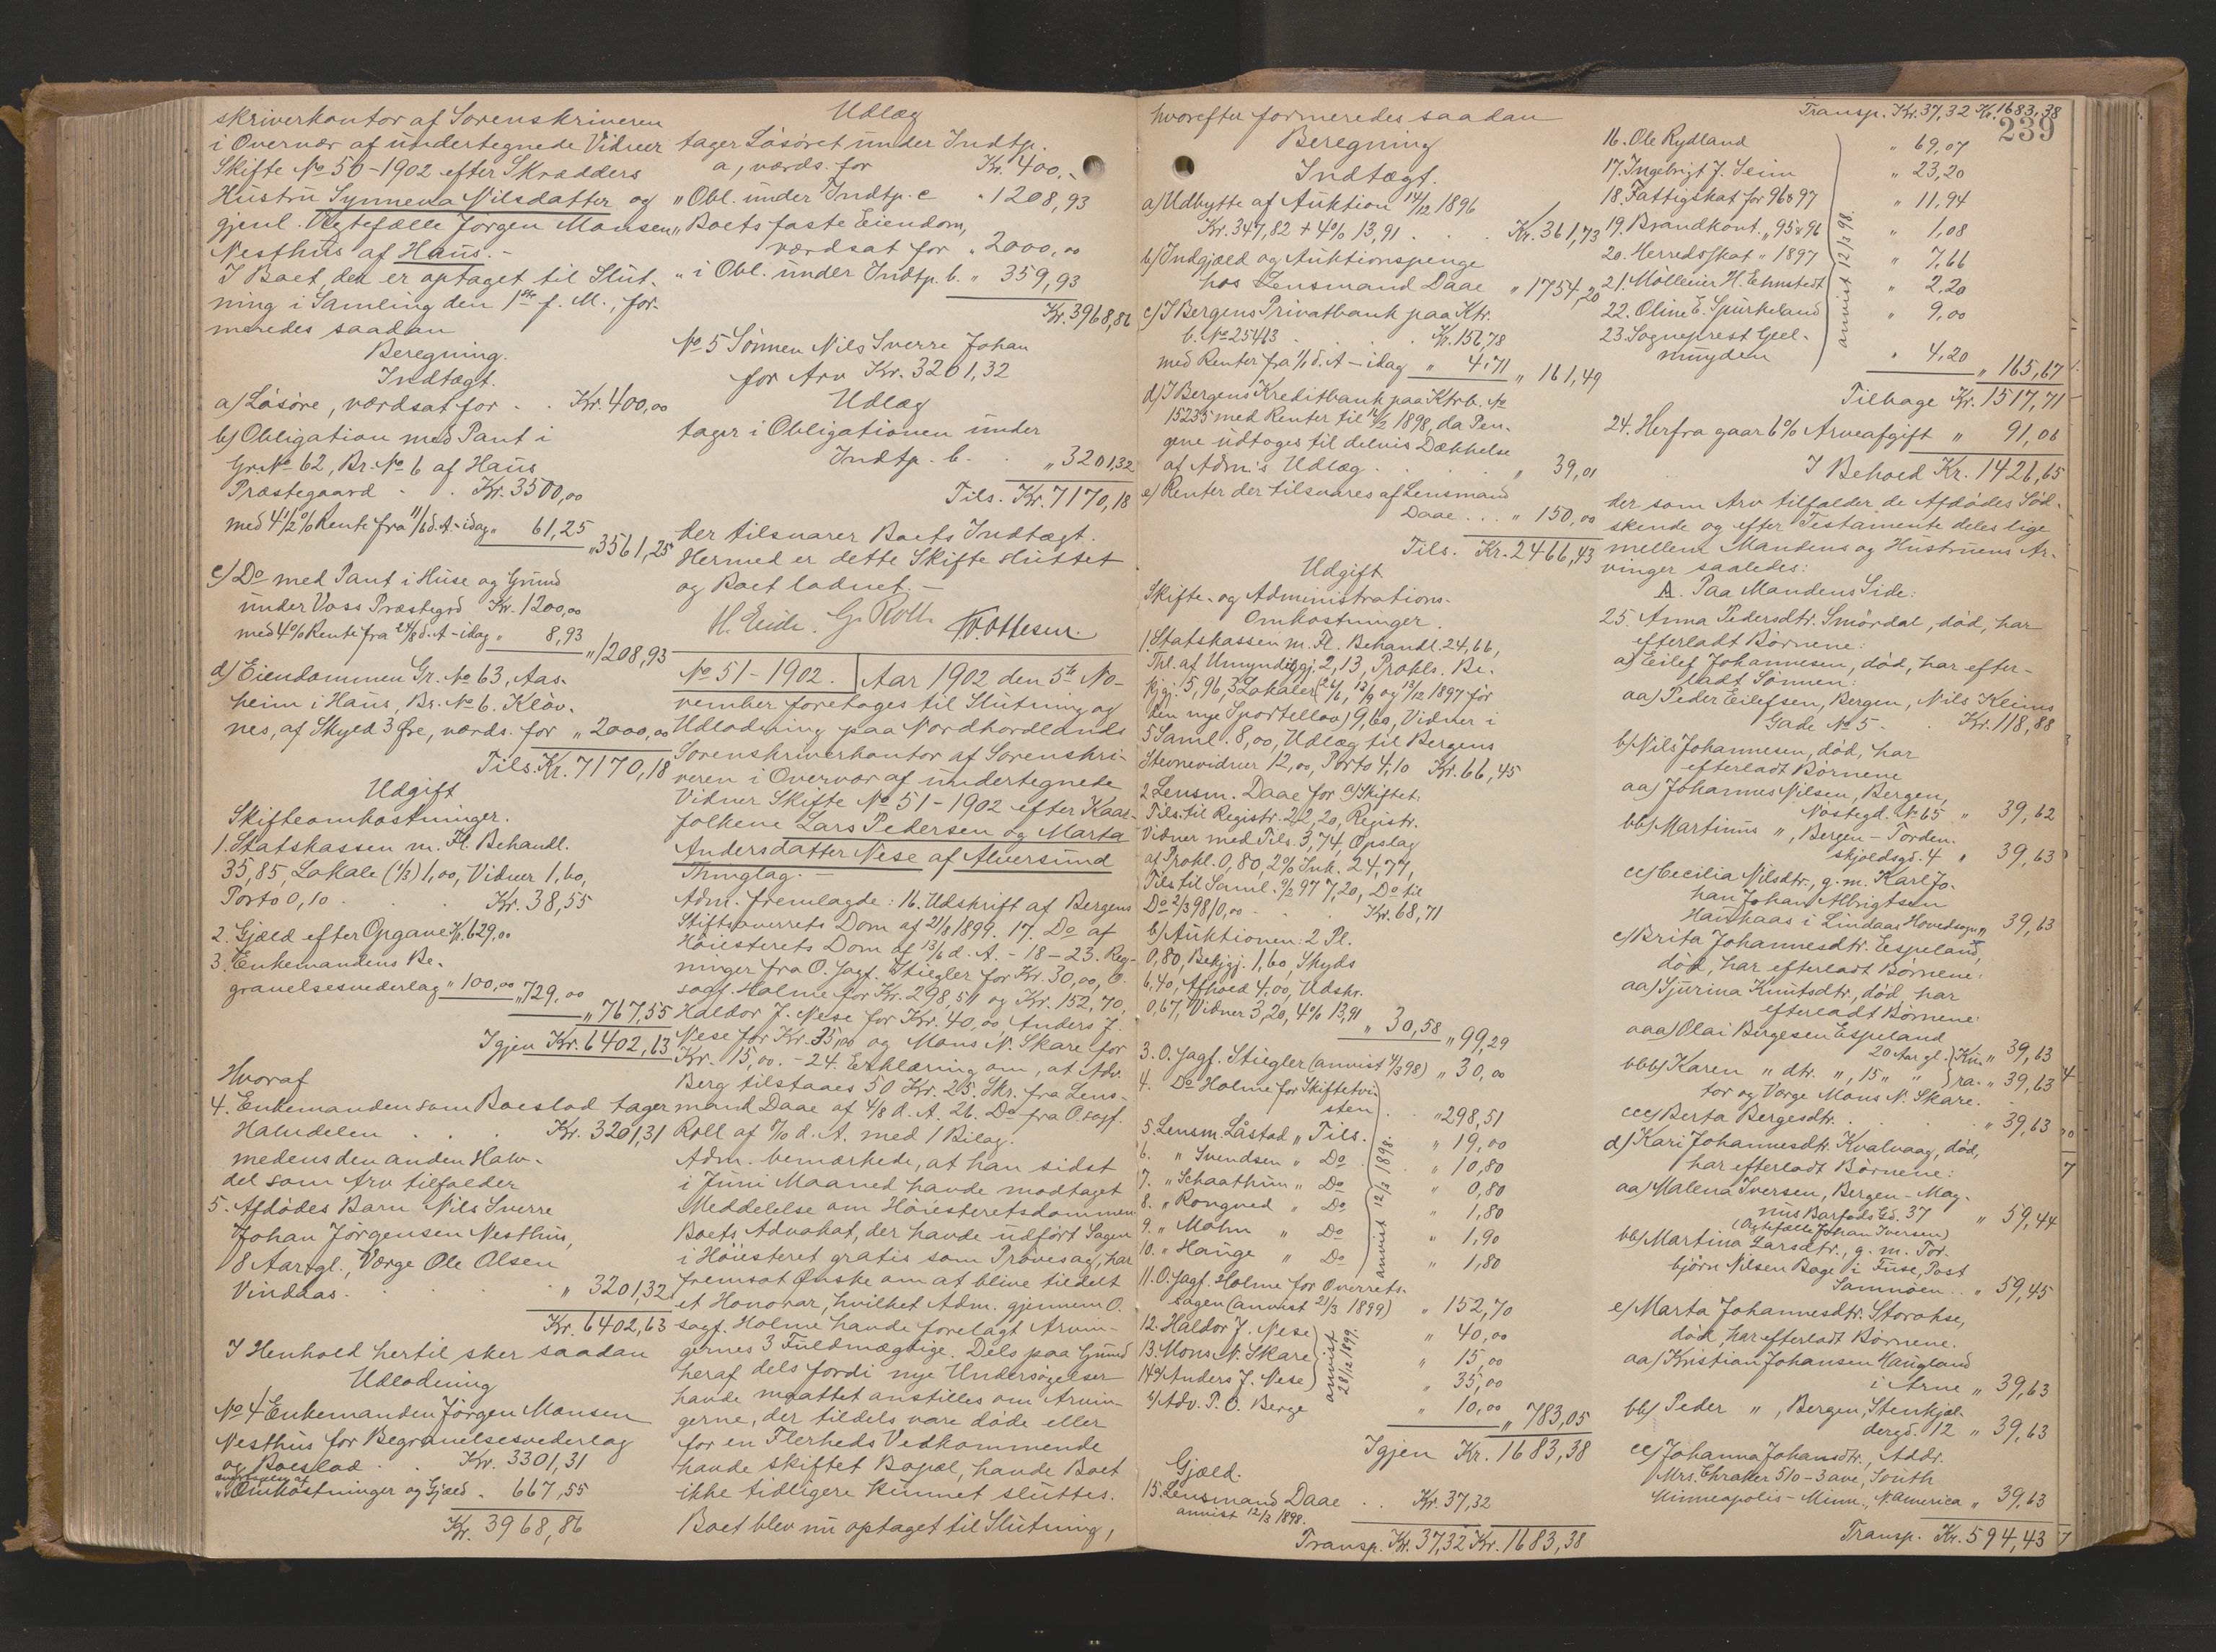 skriverkontor af Sorenskriveren
i Overvær af undertegnede Vidner
Skifte No 50-1902 efter Skrædders
Hustru Synneva Nilsdatter og
gjenl. Ægtefælle Jørgen Monsen
Nesthus af Haus.-
I Boet, der er optaget til Slut-
ning i Samling den 1ste f. M., for-
meredes saadan
Beregning.
Indtægt.
a) Løsøre, værdsat for . . Kr. 400,00
b) Obligation med Pant i
Gr. No 62, Br. No 6 af Haus
Præstegaard . . Kr. 3500,00
med 4 1/2 % Rente fra 11/6 d. A - idag " 61,25
" 3561,25
c) Do med Pant i Huse og Grund
under Voss Præstegrd Kr. 1200,00
med 4% Rente fra 24/8 d. A - idag " 8,93
" 1208,93
d) Eiendommen Gr. No 63, Aas-
heim i Haus, Br. No 6. Kløv-
nes, af Skyld 3 Øre, værds. for " 2000,00
Tils. Kr. 7170,18
Udgift
Skifteomkostninger.
1. Statskassen m. Fl. Behandl.
35,85, Lokale (1/3) 1,00, Vidner 1,60,
Porto 0,10 . . Kr. 38,55
2. Gjæld efter Opgave Kr. 629,00
3. Enkemandens Be-
gravelsesvederlag " 100,00 " 729,00
" 767,55
Igjen Kr. 6402,63
Hvoraf
4. Enkemanden som Boeslod tager
Halvdelen . . . Kr. 3201,31
medens den anden Halv-
del som Arv tilfalder
5. Afdødes Barn Nils Sverre
Johan Jørgensen Nesthus,
8 Aar gl., Værge Ole Olsen
Vindaas . . . " 3201,32
Kr. 6402,63
I Henhold hertil sker saadan
Udlodning
No 4 Enkemanden Jørgen Monsen
Nesthus for Begravelsesvederlag
og Boeslod . . Kr. 3301,31
" Omkostninger og Gjæld . 667,55
Kr. 3968,86
Udlæg
tager Løsøret under Indtp.
a, værds. for Kr. 400.-
" Obl. under Indtp. c " 1208,93
" Boets faste Eiendom,
værdsat for " 2000,00
" i Obl. under Indtp. b. " 359,93
Kr. 3968,86
No 5 Sønnen Nils Sverre Johan
for Arv Kr. 3201,32
Udlæg
tager i Obligationen under
Indtp. b. . " 3201,32
Tils. Kr. 7170,18
der tilsvarer Boets Indtægt.
Hermed er dette Skifte sluttet
og Boet lodnet.-
H. Eide. G. Roth.
No 51-1902. Aar 1902 den 5te No-
vember foretoges til Slutning og
Udlodning paa Nordhordlands
Sorenskriverkontor af Sorenskri-
veren i Overvær af undertegnede
Vidner Skifte No 51-1902 efter Kaar-
folkene Lars Pedersen og Marta
Andersdatter Nese af Alversund
Thinglag.-
Adm. fremlagde: 16. Udskrift af Bergens
Stiftsoverrets Dom af 21/8 1899. 17. Do af
Høiesterets Dom af 13/6 d. A. - 18-23. Reg-
ninger fra O. sagf. Stiegler for Kr. 30,00, O.
sagf. Holme for Kr. 298,51 og Kr. 152,70,
Haldor J. Nese for Kr. 40,00, Anders J.
Nese for Kr. 35,00 og Mons N. Skare for
Kr. 15,00. - 24. Erklæring om, at Adv.
Berg tilstaaes 50 Kr. 25. Skr. fra Lens-
mand Daae af 4/8 d. A. 26. Do fra O. sagf.
Roll af d. A. med 1 Bilag.
Adm. bemærkede, at han sidst
i Juni Maaned havde modtaget
Meddelelse om Høiesteretsdommen
Boets Advokat, der havde udført Sagen
i Høiesteret gratis som Prøvesag, har
fremsat Ønske om at blive tildelt
et Honorar, hvilket Adm. gjennem O.
sagf. Holme havde forelagt Arvin-
gernes 3 Fuldmægtige. Dels paa Grund
heraf dels fordi nye Undersøgelser
havde maattet anstilles om Arvin-
gerne, der tildels vare døde eller
for en Flerheds Vedkommende
havde skiftet Bopæl, havde Boet
ikke tidligere kunnet sluttes.
Boet blev nu optaget til Slutning,
hvorefter formeredes saadan
Beregning
Indtægt.
a) Udbytte af Auktion 14/12 1896
Kr. 347,82 + 4% 13,91 . . Kr. 361,73
b) Indgjæld og Auktionspenge
hos Lensmand Daae " 1754,20
c) I Bergens Privatbank paa Ktr.
b. No 25413 . . Kr. 156,78
med Renter fra 1/1 d. A - idag " 4,71 " 161,49
d) I Bergens Kreditbank paa Ktrb. No
15235 med Renter til 1898, da Pen-
gene udtoges til delvis Dækkelse
af Adm's Udlæg . . " 39,01
e) Renter der tilsvares af Lensmand
Daae . . . " 150,00
Tils. Kr. 2466,43
Udgift
Skifte- og Administrations-
Omkostninger.
1. Statskassen m. Fl. Behandl. 24,66,
Thl. af Umyndiggj. 2,13, Prokls. Be-
kjgj. 15,96, 3 Lokaler (26/6, 13/9 og 13/12 1897 før
den nye Sportellov) 9,60, Vidner i
5 Saml. 8,00, Udlæg til Bergens
Stevnevidner 12,00, Porto 4,10 Kr. 66,45
2. Lensm. Daae for a) Skiftet:
Tils. til Registr. 22,20, Registr.
Vidner med Tils. 3,74, Opslag
af Prokl. 0,80, 2% Ink. 24,77,
Tils til Saml. 9/2 97 7,20, Do til
Do 2/3 98 10,00 . . Kr. 68,71
b) Auktionen: 2 Pl.
0,80, Bekjgj. 1,60, Skyds
6,40, Afhold 4,00, Udskr.
0,67, Vidner 3,20, 4% 13,91 " 30,58 " 99,29
3. O. sagf. Stiegler (anvist 4/3 98) " 30,00
4. Do Holme for Skiftetvi-
sten . . " 298,51
5. Lensm. Låstad " Tils. . " 19,00
6. " Svendsen " Do . " 10,80
7. " Schaathun " Do " 0,80
8. " Rongved " Do " 1,80
9. " Mohn " Do " 1,90
10. " Hauge " Do " 1,80
anvist 12/3 1898
11. O. sagf. Holme for Overrets-
sagen (anvist 21/3 1899) " 152,70
12. Haldor J. Nese " 40,00
13. Mons N. Skare " 15,00
14 a) Anders J. Nese " 35,00
anvist 28/12 1899.
b) Adv. P. O. Berge " 10,00
" 783,05
Igjen Kr. 1683,38
Gjæld.
15. Lensmand Daae . . Kr. 37,32
anvist 12/3 1898.
Transp. Kr. 37,32 Kr. 1683,38
Transp. Kr. 37,32 Kr. 1683,38
239
16. Ole Rydland " 69,07
17. Ingebrigt J. Seim " 23,20
18. Fattigskat for 96 & 97 " 11,94
19. Brandkont. " 95 & 96 " 1,08
20. Herredsskat " 1897 " 7,66
21. Møllerier H. Ehmstedt " 2,20
22. Oline E. Spurkeland " 9,00
23. Sogneprest Geel-
muyden " 4,20 " 165,67
anvist 12/3 98.
Tilbage Kr. 1517,71
24. Herfra gaar 6% Arveafgift " 91,06
I Behold Kr. 1426,65
der som Arv tilfalder de Afdødes Sød-
skende og efter Testamente deles lige
mellem Mandens og Hustruens Ar-
vinger saaledes:
A. Paa Mandens Side:
25. Anna Pedersdtr. Smørdal, død, har
efterladt Børnene:
a) Eilef Johannesen, død, har efter-
ladt Sønnen:
aa) Peder Eilefsen, Bergen, Nils Kleims
Gade No 5 . . Kr. 118,88
b) Nils Johannesen, død, har
efterladt Børnene
aa) Johannes Nilsen, Bergen,
Nøstegd. No 65 " 39,62
bb) Martinus " , Bergen - Torden-
skjoldsgd. 4 " 39,63
cc) Cecilia Nilsdtr., g. m. Karl Jo-
han Johan Albrigtsen
Haukaas i Lindaas Hovedsogn " 39,63
c) Brita Johannesdtr. Espeland,
død, har efterladt Børnene:
aa) Sjurina Knutsdtr., død, har
efterladt Børnene:
aaa) Olai Bergesen Espeland
20 Aar gl. " 39,63
bbb) Karen " dtr. ", 15 " " " 39,63
Kura-
tor og Værge Mons N. Skare.
ccc) Berta Bergesdtr. . . " 39,63
d) Kari Johannesdtr. Kvalvaag, død,
har efterladt Børnene:
aa) Malena Iversen, Bergen - Mag-
nus Barfods Gd. 37 " 59,44
(Ægtefælle Johan Iversen)
bb) Martina Larsdtr., g. m. Tor-
bjørn Nilsen Bage i Fuse, Post
Samnøen . . " 59,45
e) Marta Johannesdtr. Storakse,
død, har efterladt Børnene.
aa) Kristian Johansen Haugland
i Arne " 39,63
bb) Peder " , Bergen, Stenkjel-
dergd. 12 " 39,63
cc) Johanna Johansdtr., Addr.
Mrs. Thraker 510 - 3 ave, South
Minneapolis - Minn., N. America " 39,63
Transp. Kr. 594,43